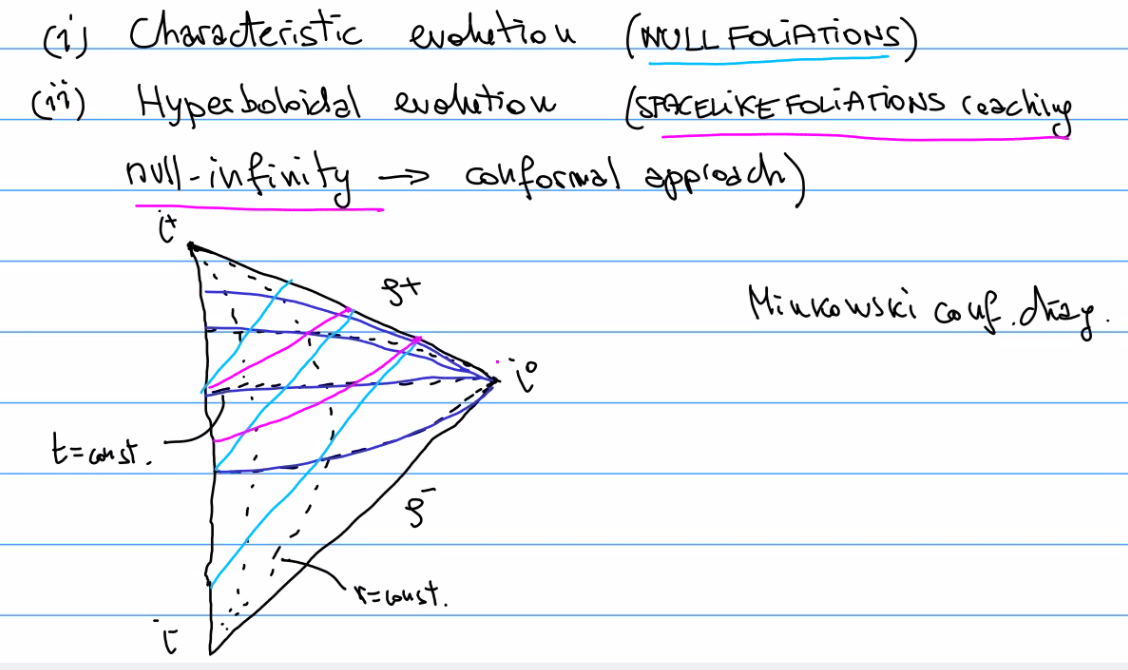 (i) Characteristic evolution (NULL FOLIATIONS)
(ii) Hyperboloidal evolution (SPACELIKE FOLIATIONS reaching
null-infinity → conformal approach)
i⁺
𝓘⁺
Minkowski conf. diag.
i⁰
t=const.
𝓘⁻
r=const.
i⁻